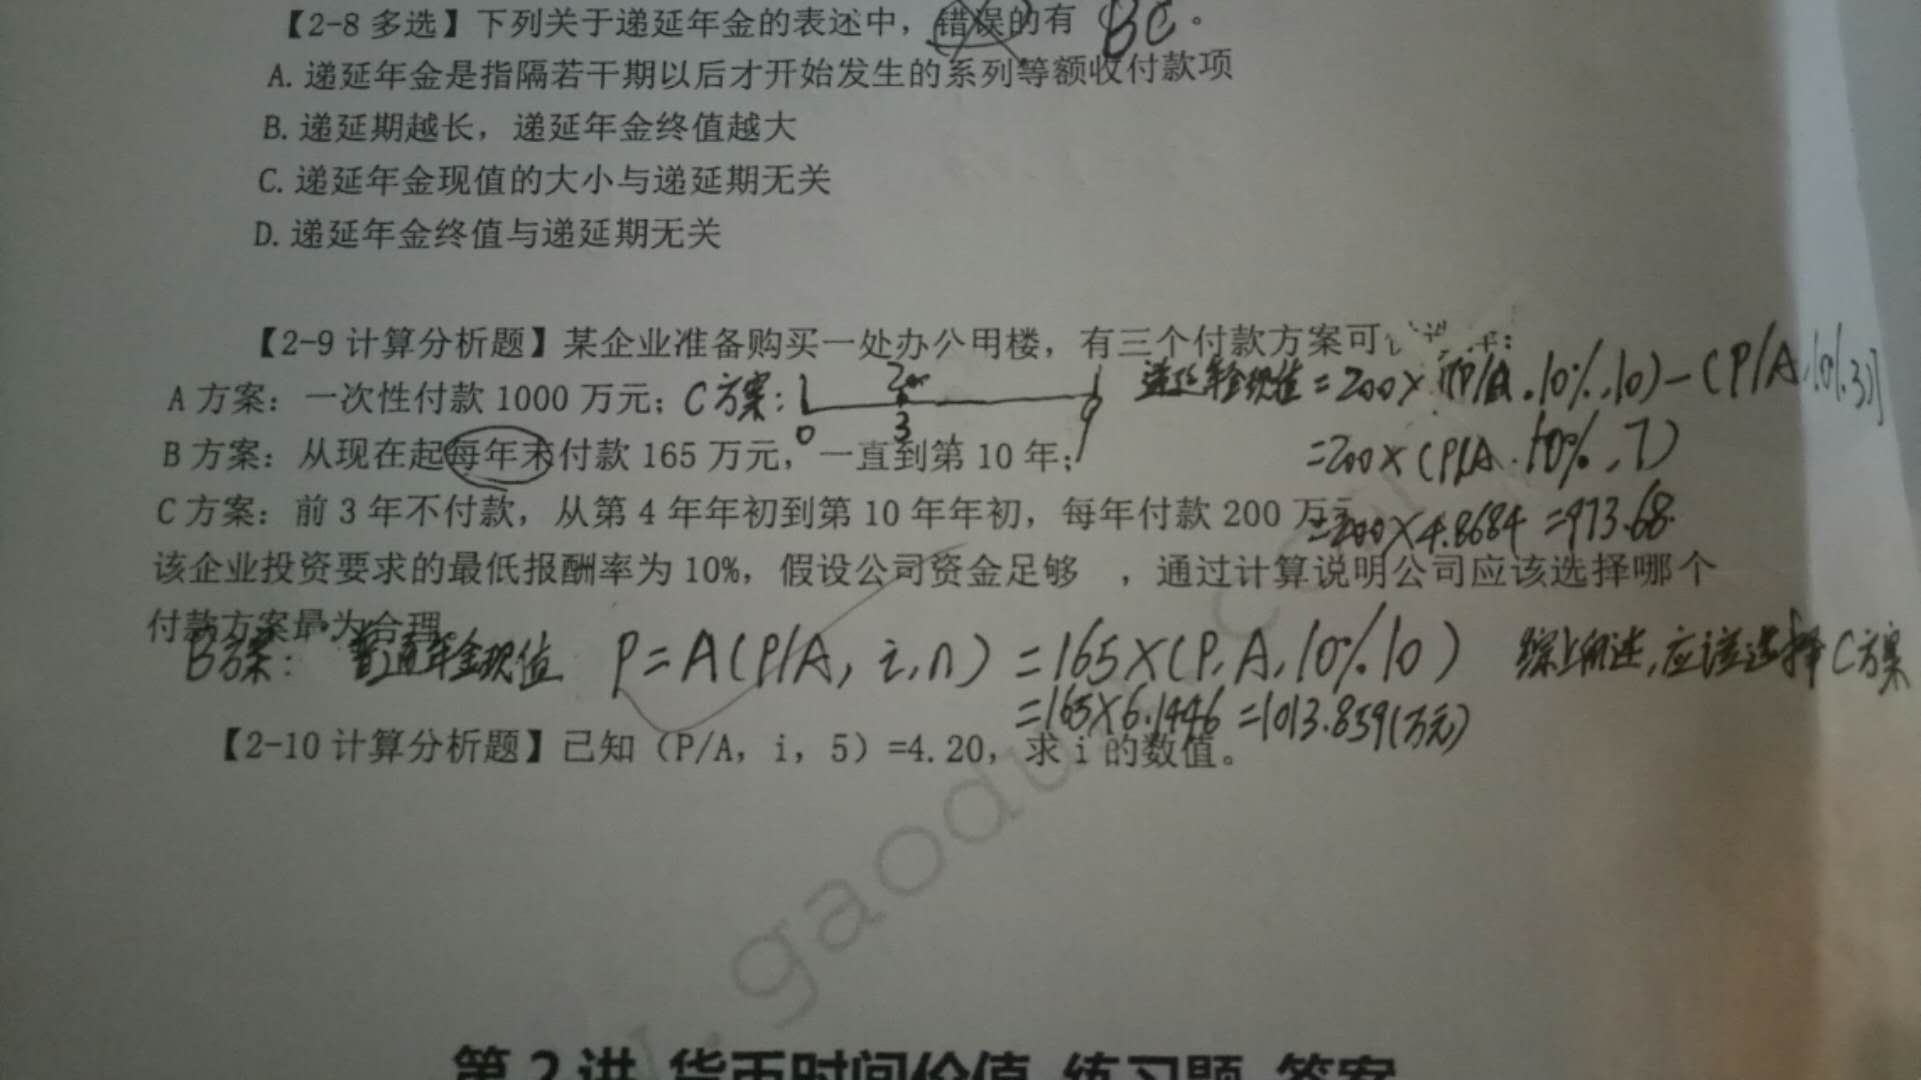 【2-8 多选】下列关于递延年金的表述中，错误的有 BC。
A. 递延年金是指隔若干期以后才开始发生的系列等额收付款项
B. 递延期越长，递延年金终值越大
C. 递延年金现值的大小与递延期无关
D. 递延年金终值与递延期无关
【2-9 计算分析题】某企业准备购买一处办公用楼，有三个付款方案可
A 方案：一次性付款 1000 万元；C方案： 200 递延年金现值=200×[(P/A.10%.10)-(P/A.10%.3)]
0 3 9
B 方案：从现在起每年末付款 165 万元，一直到第 10 年； =200×(P/A.10%.7)
C 方案：前 3 年不付款，从第 4 年年初到第 10 年年初，每年付款 200 万 =200×4.8684=973.68
该企业投资要求的最低报酬率为 10%，假设公司资金足够 ，通过计算说明公司应该选择哪个
付款方案最为合理
B方案：普通年金现值 P=A(P/A, i,n)=165×(P,A,10%10) 综上所述,应该选择C方案
=165×6.1446=1013.859(万元)
【2-10 计算分析题】已知（P/A，i，5）=4.20，求 i 的数值。
gaodu
第 2 讲 货币时间价值 练习题 答案